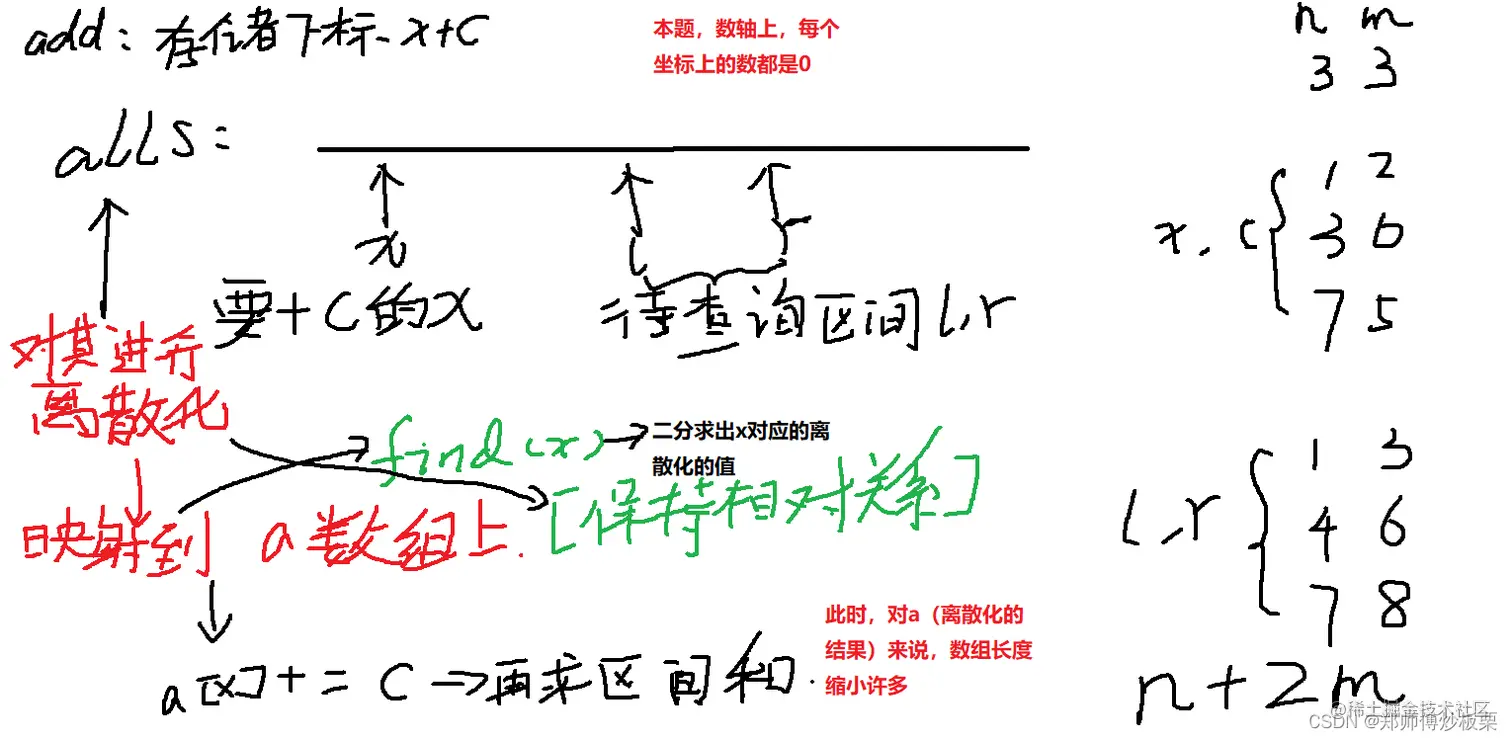 add: 存在着下标、x+C
本题，数轴上，每个
坐标上的数都是0
n m
3 3
alls:
x
l r
要+C的x
待查询区间l,r
x, c
1 2
3 6
7 5
对其进行
离散化
find(x)
二分求出x对应的离
散化的值
[保持相对关系]
映射到 a数组上.
l,r
1 3
4 6
7 8
a[x]+=C⇒再求区间和.
此时，对a（离散化的
结果）来说，数组长度
缩小许多
n+2m
@稀土掘金技术社区
CSDN @郑师傅炒板栗